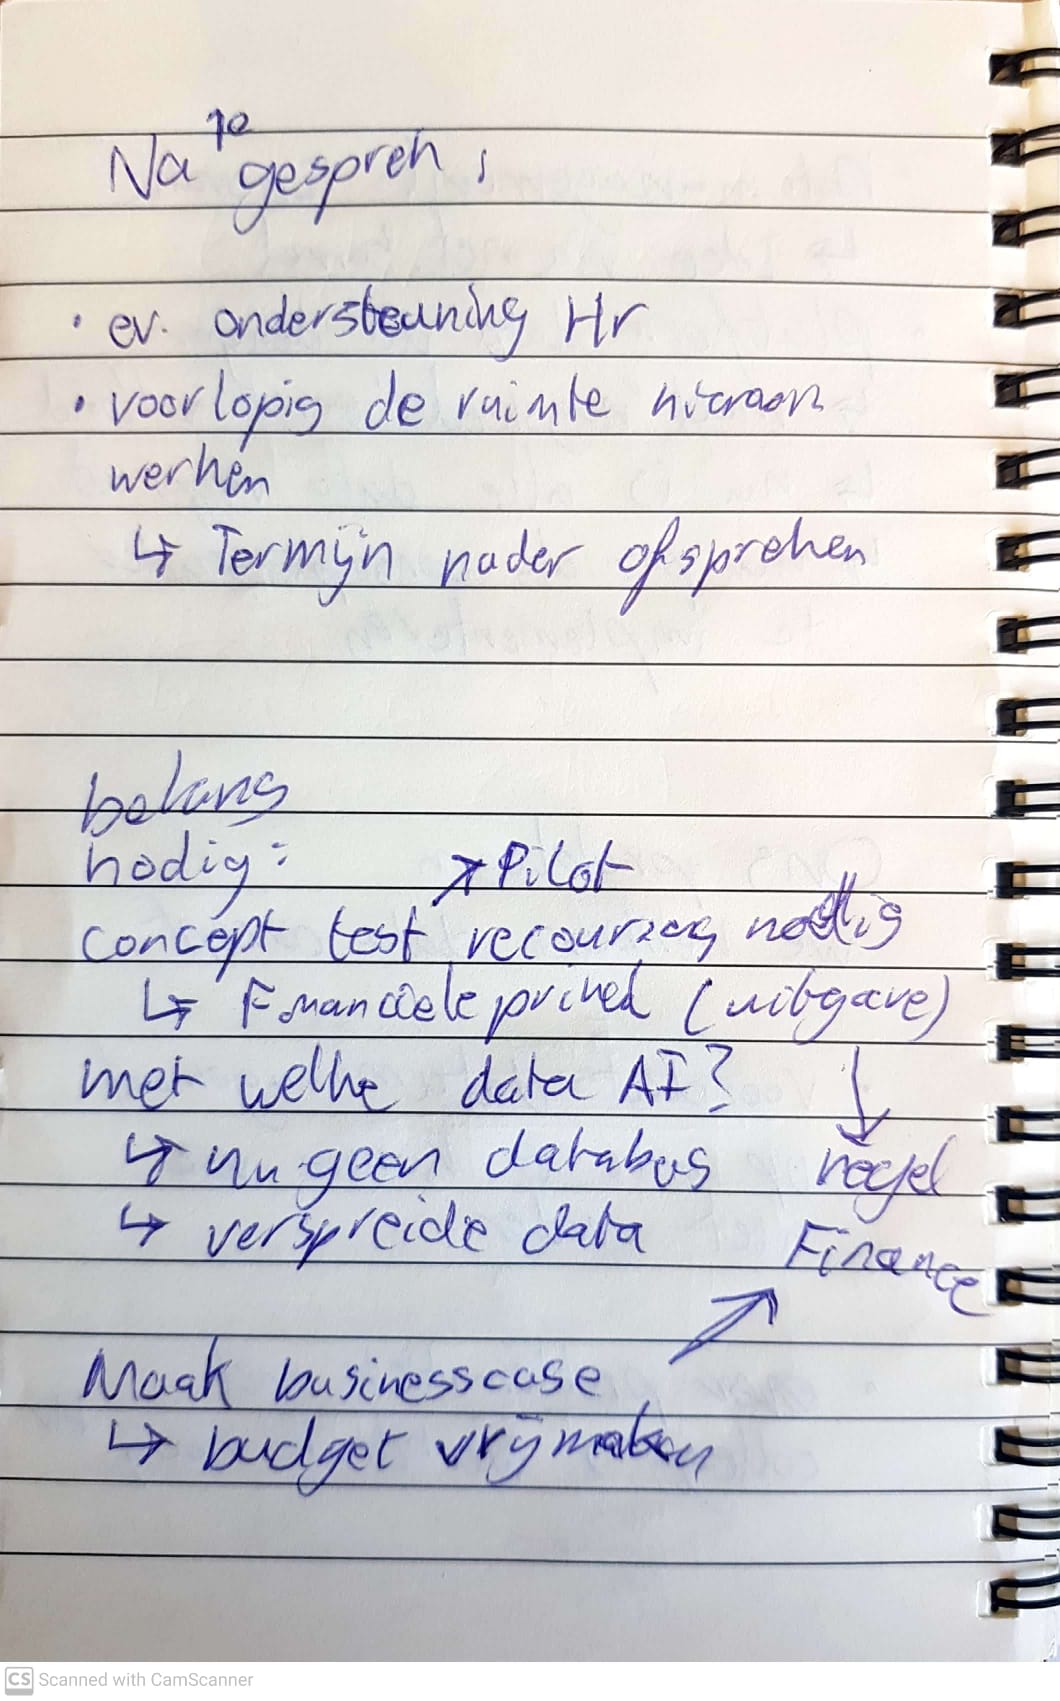 Na 1e gesprek ;
• ev. ondersteuning Hr
• voorlopig de ruimte hieraan
werken
↳ Termijn nader afspreken
belang
nodig:
↗ Pilot
concept test nodig
↳ Financiele prikkel (uitgave)
met welke data AI? ↓
↳ nu geen databas regel
↳ verspreide data Finance
↗
Maak businesscase
↳ budget vrijmaken
CS Scanned with CamScanner